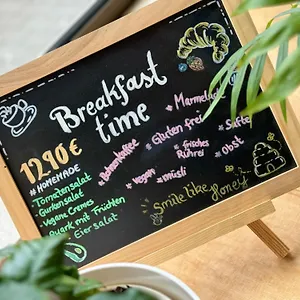 Breakfast
time
12,90€
#HOMEMADE
Tomatensalat
Gurkensalat
Vegane Cremes
Quark mit Früchten
Eiersalat
* Marmelade
* Gluten frei
* Säfte
* frisches
Rührei
* Obst
* vegan
* müsli
Smile like
Honey